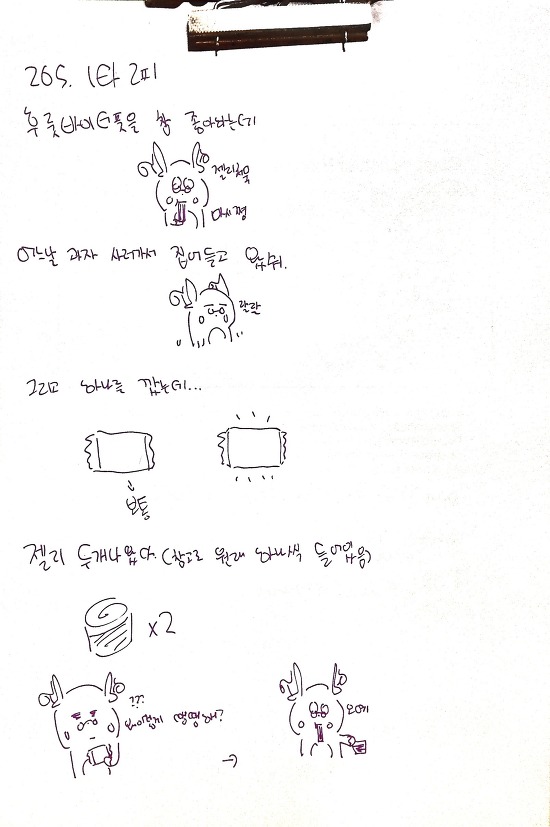 265. 1타 2피
후룻바이더풋을 참 좋아하는데
젤리처묵
마시쩡
어느날 과자 사러가서 집어들고 왔쥐.
랄랄
그리고 하나를 깠는데...
보통
젤리 두개나왔다. (참고로 원래 하나씩 들어있음)
x2
???
왜이렇게 땡땡해?
→
오예